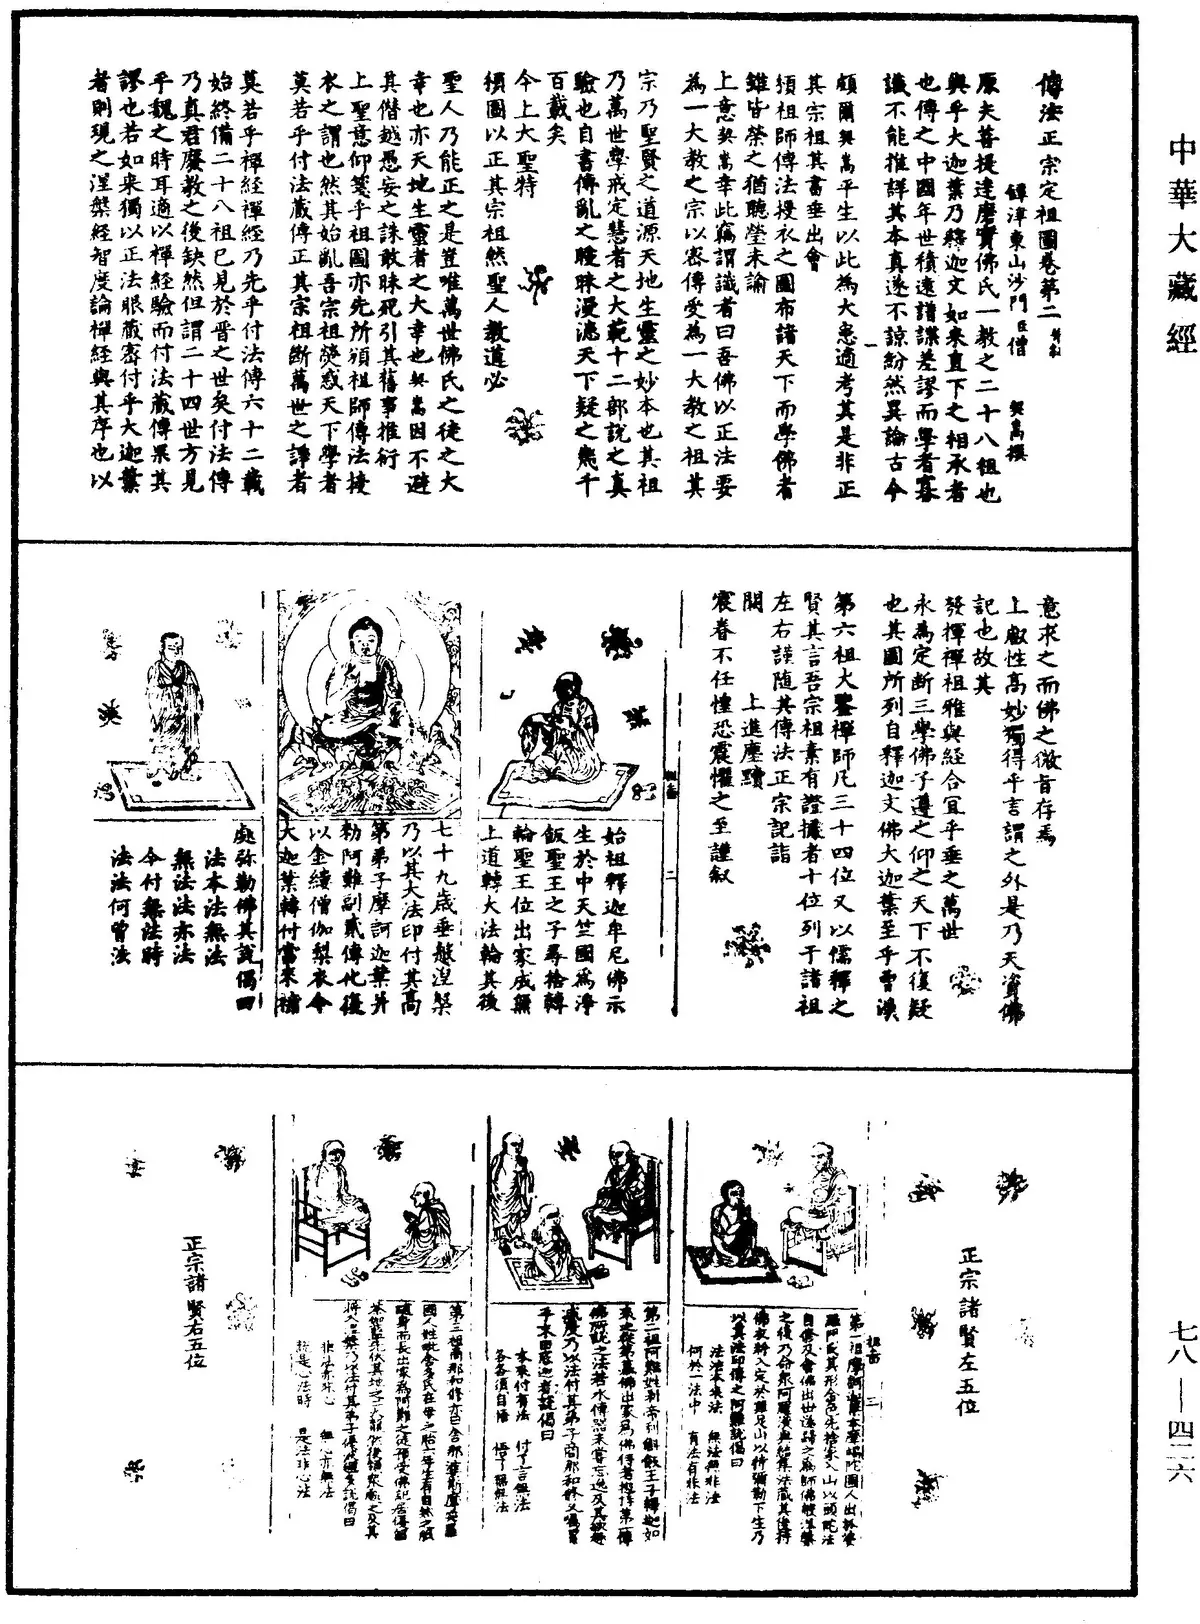 中華大藏經
七八—四二六
傳法正宗定祖圖卷第二 并敘
鐔津東山沙門臣僧 契嵩撰
原夫菩提達磨實佛氏一教之二十八祖也
與乎大迦葉乃釋迦文如來直下之相承者
也傳之中國年世積遠譜諜差謬而學者寡
識不能推詳其本真遂不諒紛然異論古今
頗爾契嵩平生以此為大患適考其是非正
其宗祖其書垂出會
頒祖師傳法授衣之圖布諸天下而學佛者
雖皆榮之猶聽瑩未諭
上意契嵩幸此竊謂識者曰吾佛以正法要
為一大教之宗以密傳受為一大教之祖其
宗乃聖賢之道源天地生靈之妙本也其祖
乃萬世學戒定慧者之大範十二部說之真
驗也自書傳亂之曖昧漫漶天下疑之幾千
百載矣
今上大聖特
頒圖以正其宗祖然聖人教道必
聖人乃能正之是豈唯萬世佛氏之徒之大
幸也亦天地生靈者之大幸也契嵩因不避
其僭越愚妄之誅敢昧死引其舊事推衍
上聖意仰箋乎祖圖亦先所頒祖師傳法授
衣之謂也然其始亂吾宗祖熒惑天下學者
莫若乎付法藏傳正其宗祖斷萬世之諍者
莫若乎禪經禪經乃先乎付法傳六十二載
始終備二十八祖已見於晉之世矣付法傳
乃真君廢教之後缺然但謂二十四世方見
乎魏之時耳適以禪經驗而付法藏傳果其
謬也若如來獨以正法眼藏密付乎大迦葉
者則現之涅槃經智度論禪經與其序也以
意求之而佛之微旨存焉
上叡性高妙獨得乎言謂之外是乃天資佛
記也故其
發揮禪祖雅與經合宜乎垂之萬世
永為定斷三學佛子遵之仰之天下不復疑
也其圖所列自釋迦文佛大迦葉至乎曹溪
第六祖大鑒禪師凡三十四位又以儒釋之
賢其言吾宗祖素有證據者十位列于諸祖
左右謹隨其傳法正宗記詣
闕 上進塵黷
宸眷不任惶恐震懼之至謹敘
始祖釋迦牟尼佛示
生於中天竺國為淨
飯聖王之子尋捨轉
輪聖王位出家成無
上道轉大法輪其後
七十九歲垂般涅槃
乃以其大法印付其高
第弟子摩訶迦葉并
勑阿難副貳傳化復
以金縷僧伽梨衣令
大迦葉轉付當來補
處弥勒佛其說偈曰
法本法無法
無法法亦法
今付無法時
法法何曾法
正宗諸賢左五位
第一祖摩訶迦葉本摩竭陀國人出於婆
羅門氏其形金色先捨家入山以頭陀法
自修及會佛出世遂歸之為師佛般涅槃
之後乃命眾阿羅漢與結集法藏其後持
佛衣將入定於雞足山以待彌勒下生乃
以其法印傳之阿難說偈曰
法法本來法 無法無非法
何於一法中 有法有非法
第二祖阿難姓剎帝利斛飯王子釋迦如
來之從弟慕佛出家為佛侍者
佛所說之法若水傳器
滅度乃以法付其弟子商那和修又囑累
乎末田底迦者說偈曰
本來付有法 付了言無法
各各須自悟 悟了無無法
第三祖商那和修亦曰舍那婆斯摩突羅
國人姓毗舍多氏在母之胎六年生有自然之服
隨身而長出家為阿難之徒
將入滅乃以法付其弟子優波毱多說偈曰
非法亦非心 無心亦無法
說是心法時 是法非心法
正宗諸賢右五位